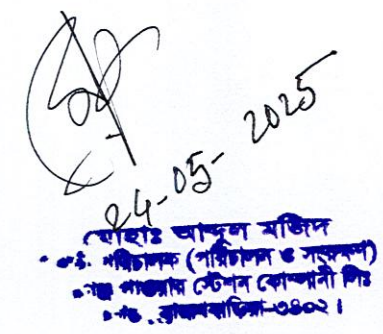 24-05-2025
মোহাঃ আব্দুল মজিদ
পরিচালক (পরিচালন ও সংরক্ষণ)
পাওয়ার স্টেশন কোম্পানী লিঃ
ব্রাহ্মণবাড়িয়া-৩৪০২।